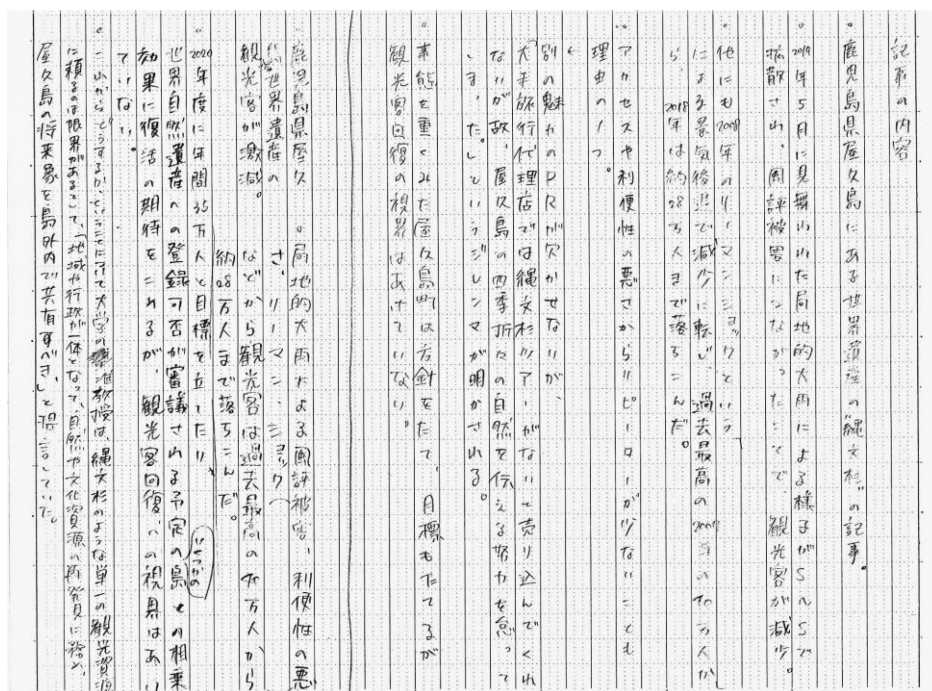 記事の内容
。鹿児島県屋久島にある世界遺産の"縄文杉"の記事。
。2019年5月に見舞われた局地的大雨による様子がSNSで
拡散され、風評被害につながったことで、観光客が減少。
他にも2008年のリーマンショックという
による景気後退で減少に転じ、過去最高の2007年の40万人か
ら、2018年は約28万人まで落ちこんだ。
アクセスや利便性の悪さからリピーターが少ないことも
理由の1つ
別の魅力のPRが欠かせないが、
「大手旅行代理店では縄文杉ツアーがないと売り込んでくれ
ないが故、屋久島の四季折々の自然を伝える努力を怠って
しまった。」というジレンマが明かされる。
。事態を重くみた屋久島町は方針をたて、目標もたてるが
観光客回復の視界はあけていない。
鹿児島県屋久 。局地的大雨による風評被害、利便性の悪
世界遺産の さ、リーマン・ショック
観光客が激減。 などから観光客は過去最高の40万人から
約28万人まで落ちこんだ。
。2020年度に年間35万人と目標を立てたり、いくつかの
世界自然遺産への登録可否が審議される予定の島との相乗
効果に復活の期待をこめるが、観光客回復への視界はあい
ていない。
。これからどうするか、ということについて大学の准教授は、縄文杉のような単一の観光資源
に頼るのは限界があるとして、「地域や行政が一体となって、自然や文化資源の再発見に務め、
屋久島の将来象を島外内で共有すべき」と提言していた。